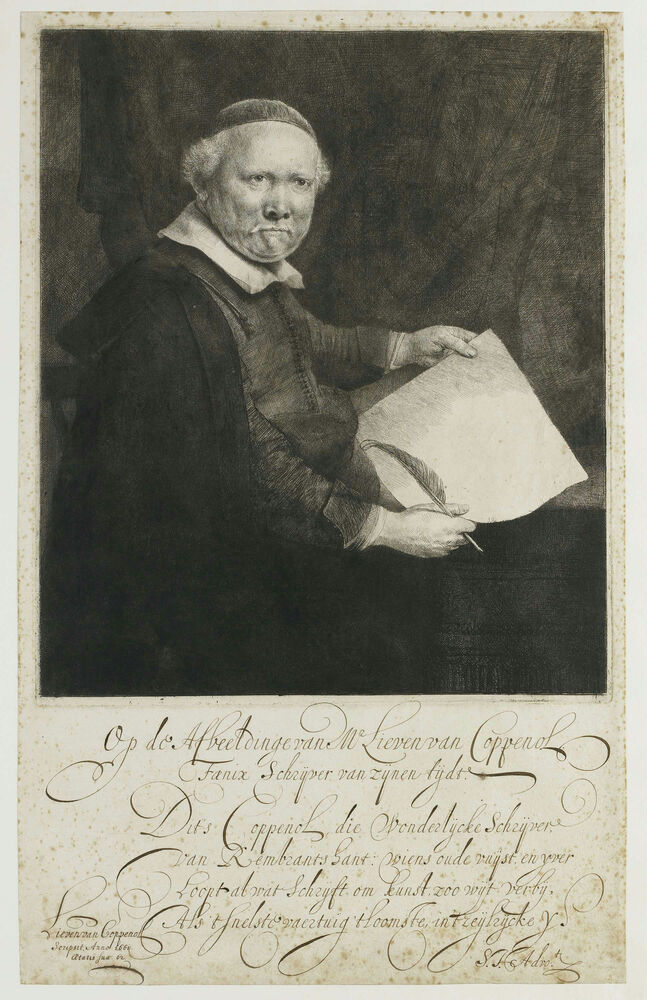 Op de Afbeeldinge van Mr Lieven van Coppenol
Fænix Schrijver van zijnen tijdt.
Dit's Coppenol, die Wonderlijcke Schrijver,
van Rembrants hant: wiens oude vuijst, en yver
Loopt al wat Schrijft om kunst, zoo wijt verby,
Als 't snelste vaertuig 't loomste, in 't zeylrycke Y.
Lieven van Coppenol
Scripsit, Anno
Ætatis suæ